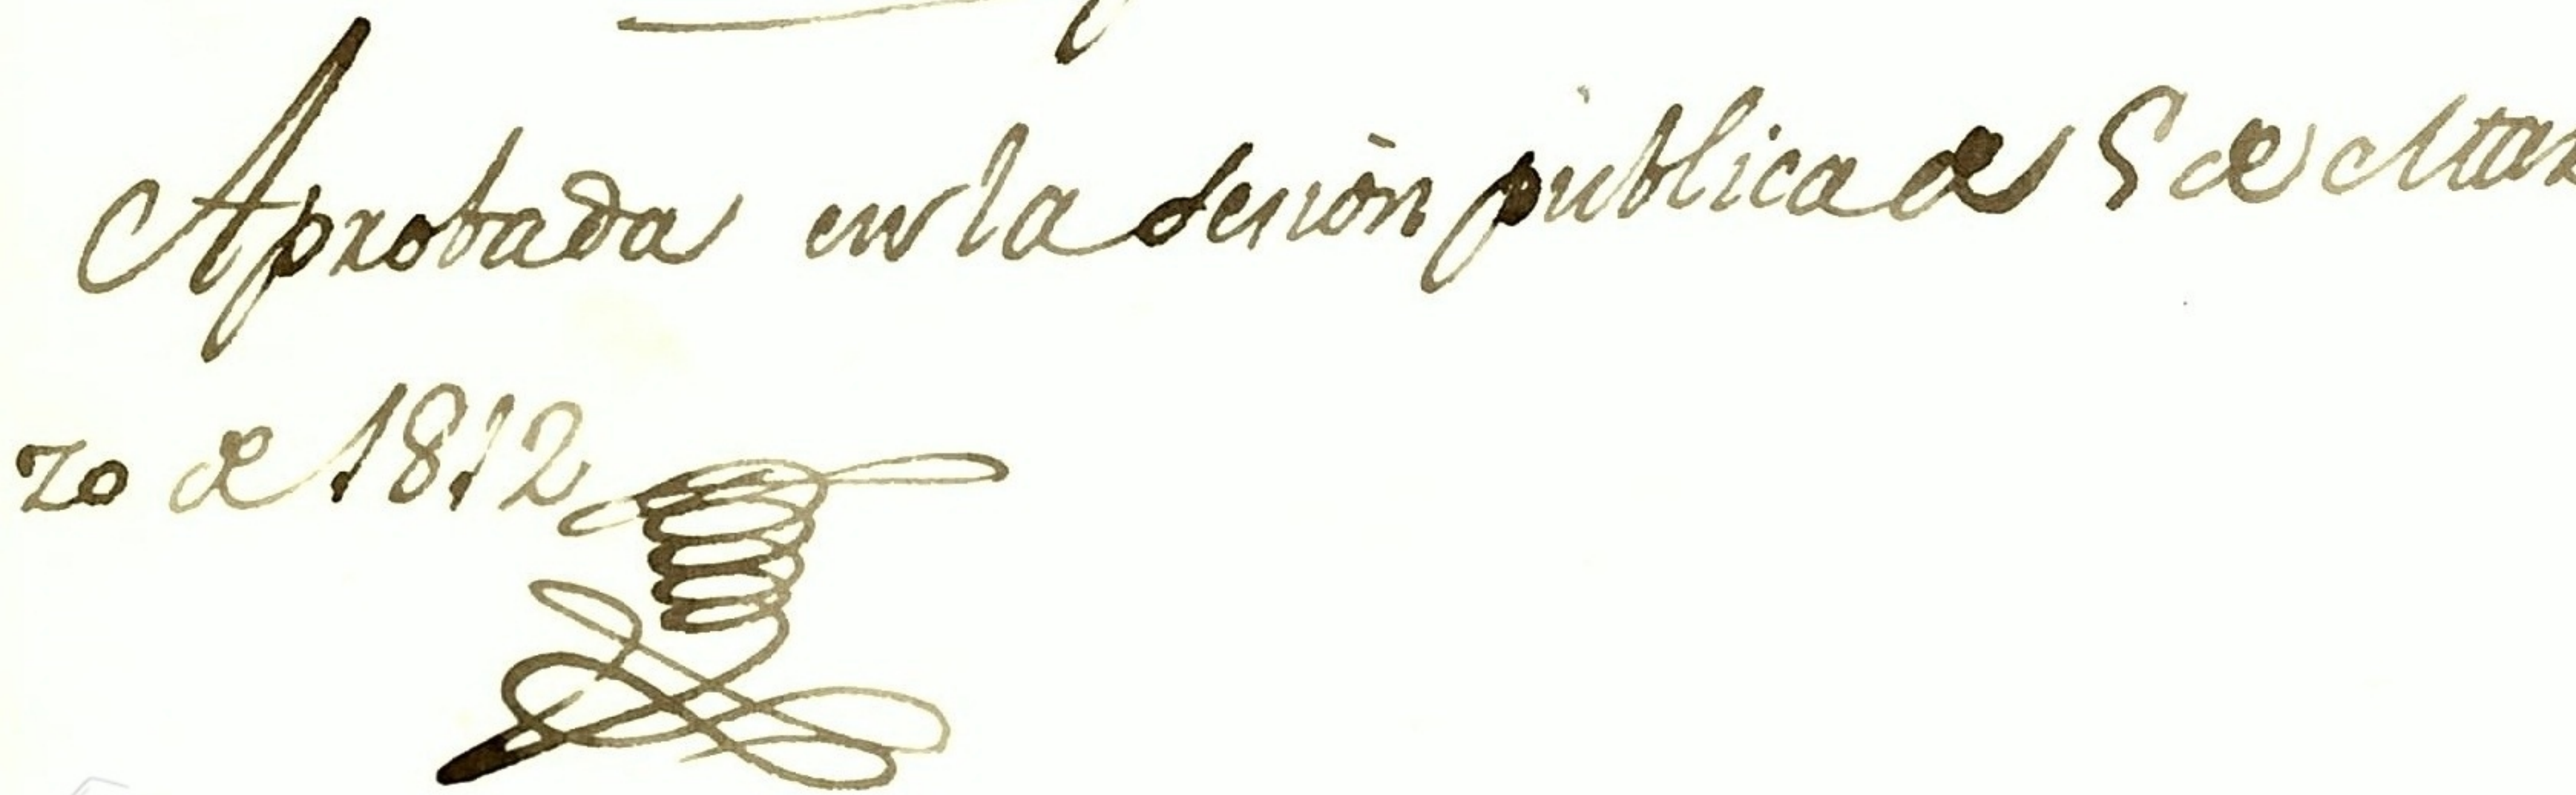 Aprobada en la sesion publica de 5 de Mar
zo de 1812